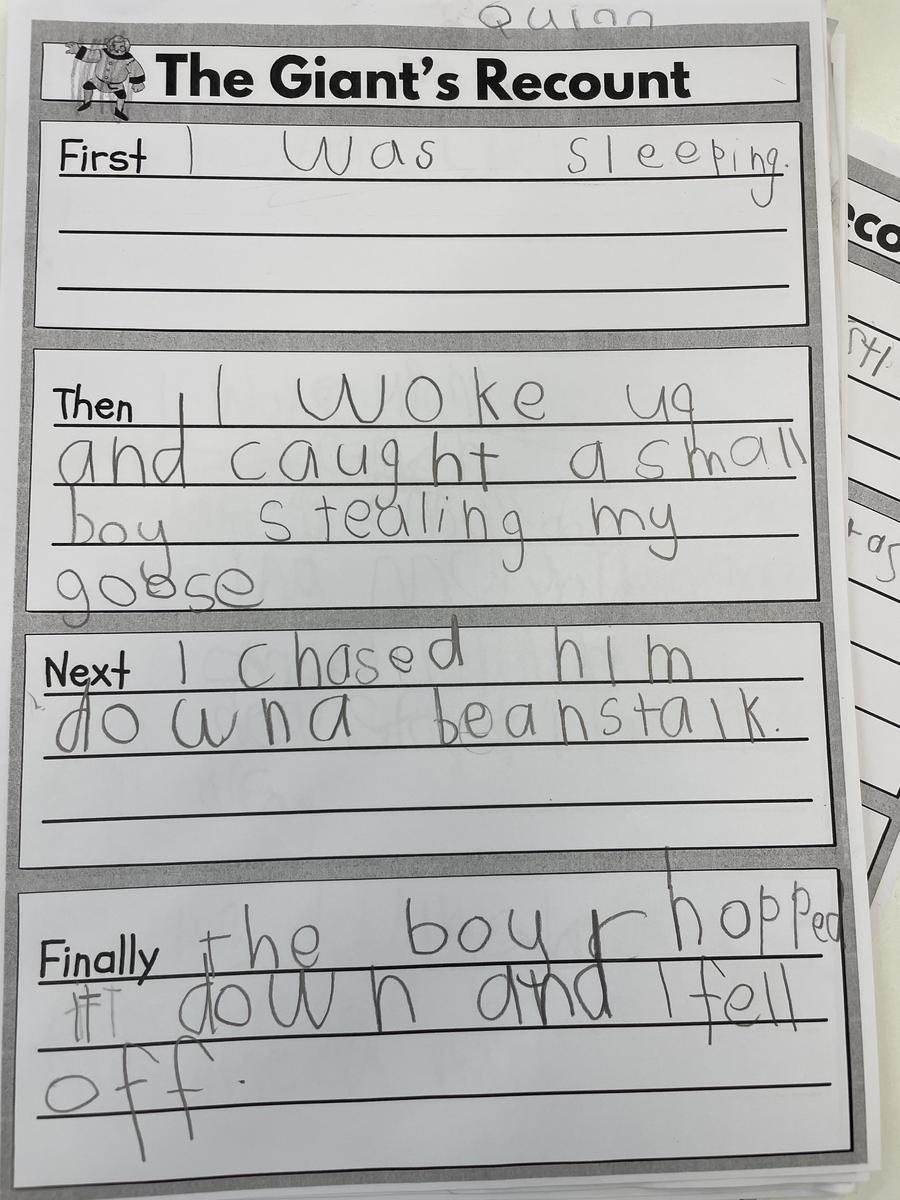 Quinn
The Giant's Recount
First I was sleeping.
Then I woke uq
and caught a small
boy stealing my
goose
Next I chased him
down a beanstalk.
Finally the boy r hopped
it down and I fell
off.
eco